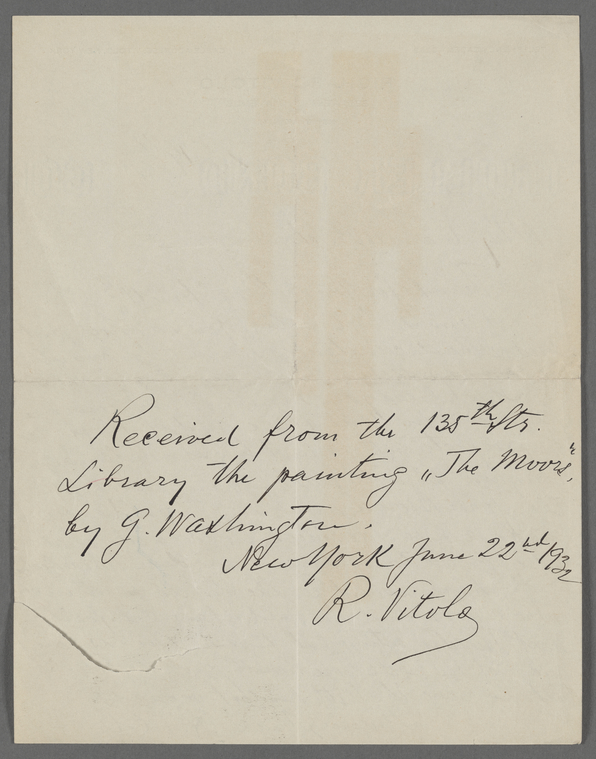 Received from the 135th Str.
Library the painting „The Moors",
by G. Washington.
New York June 22nd 1932
R. Vitolo